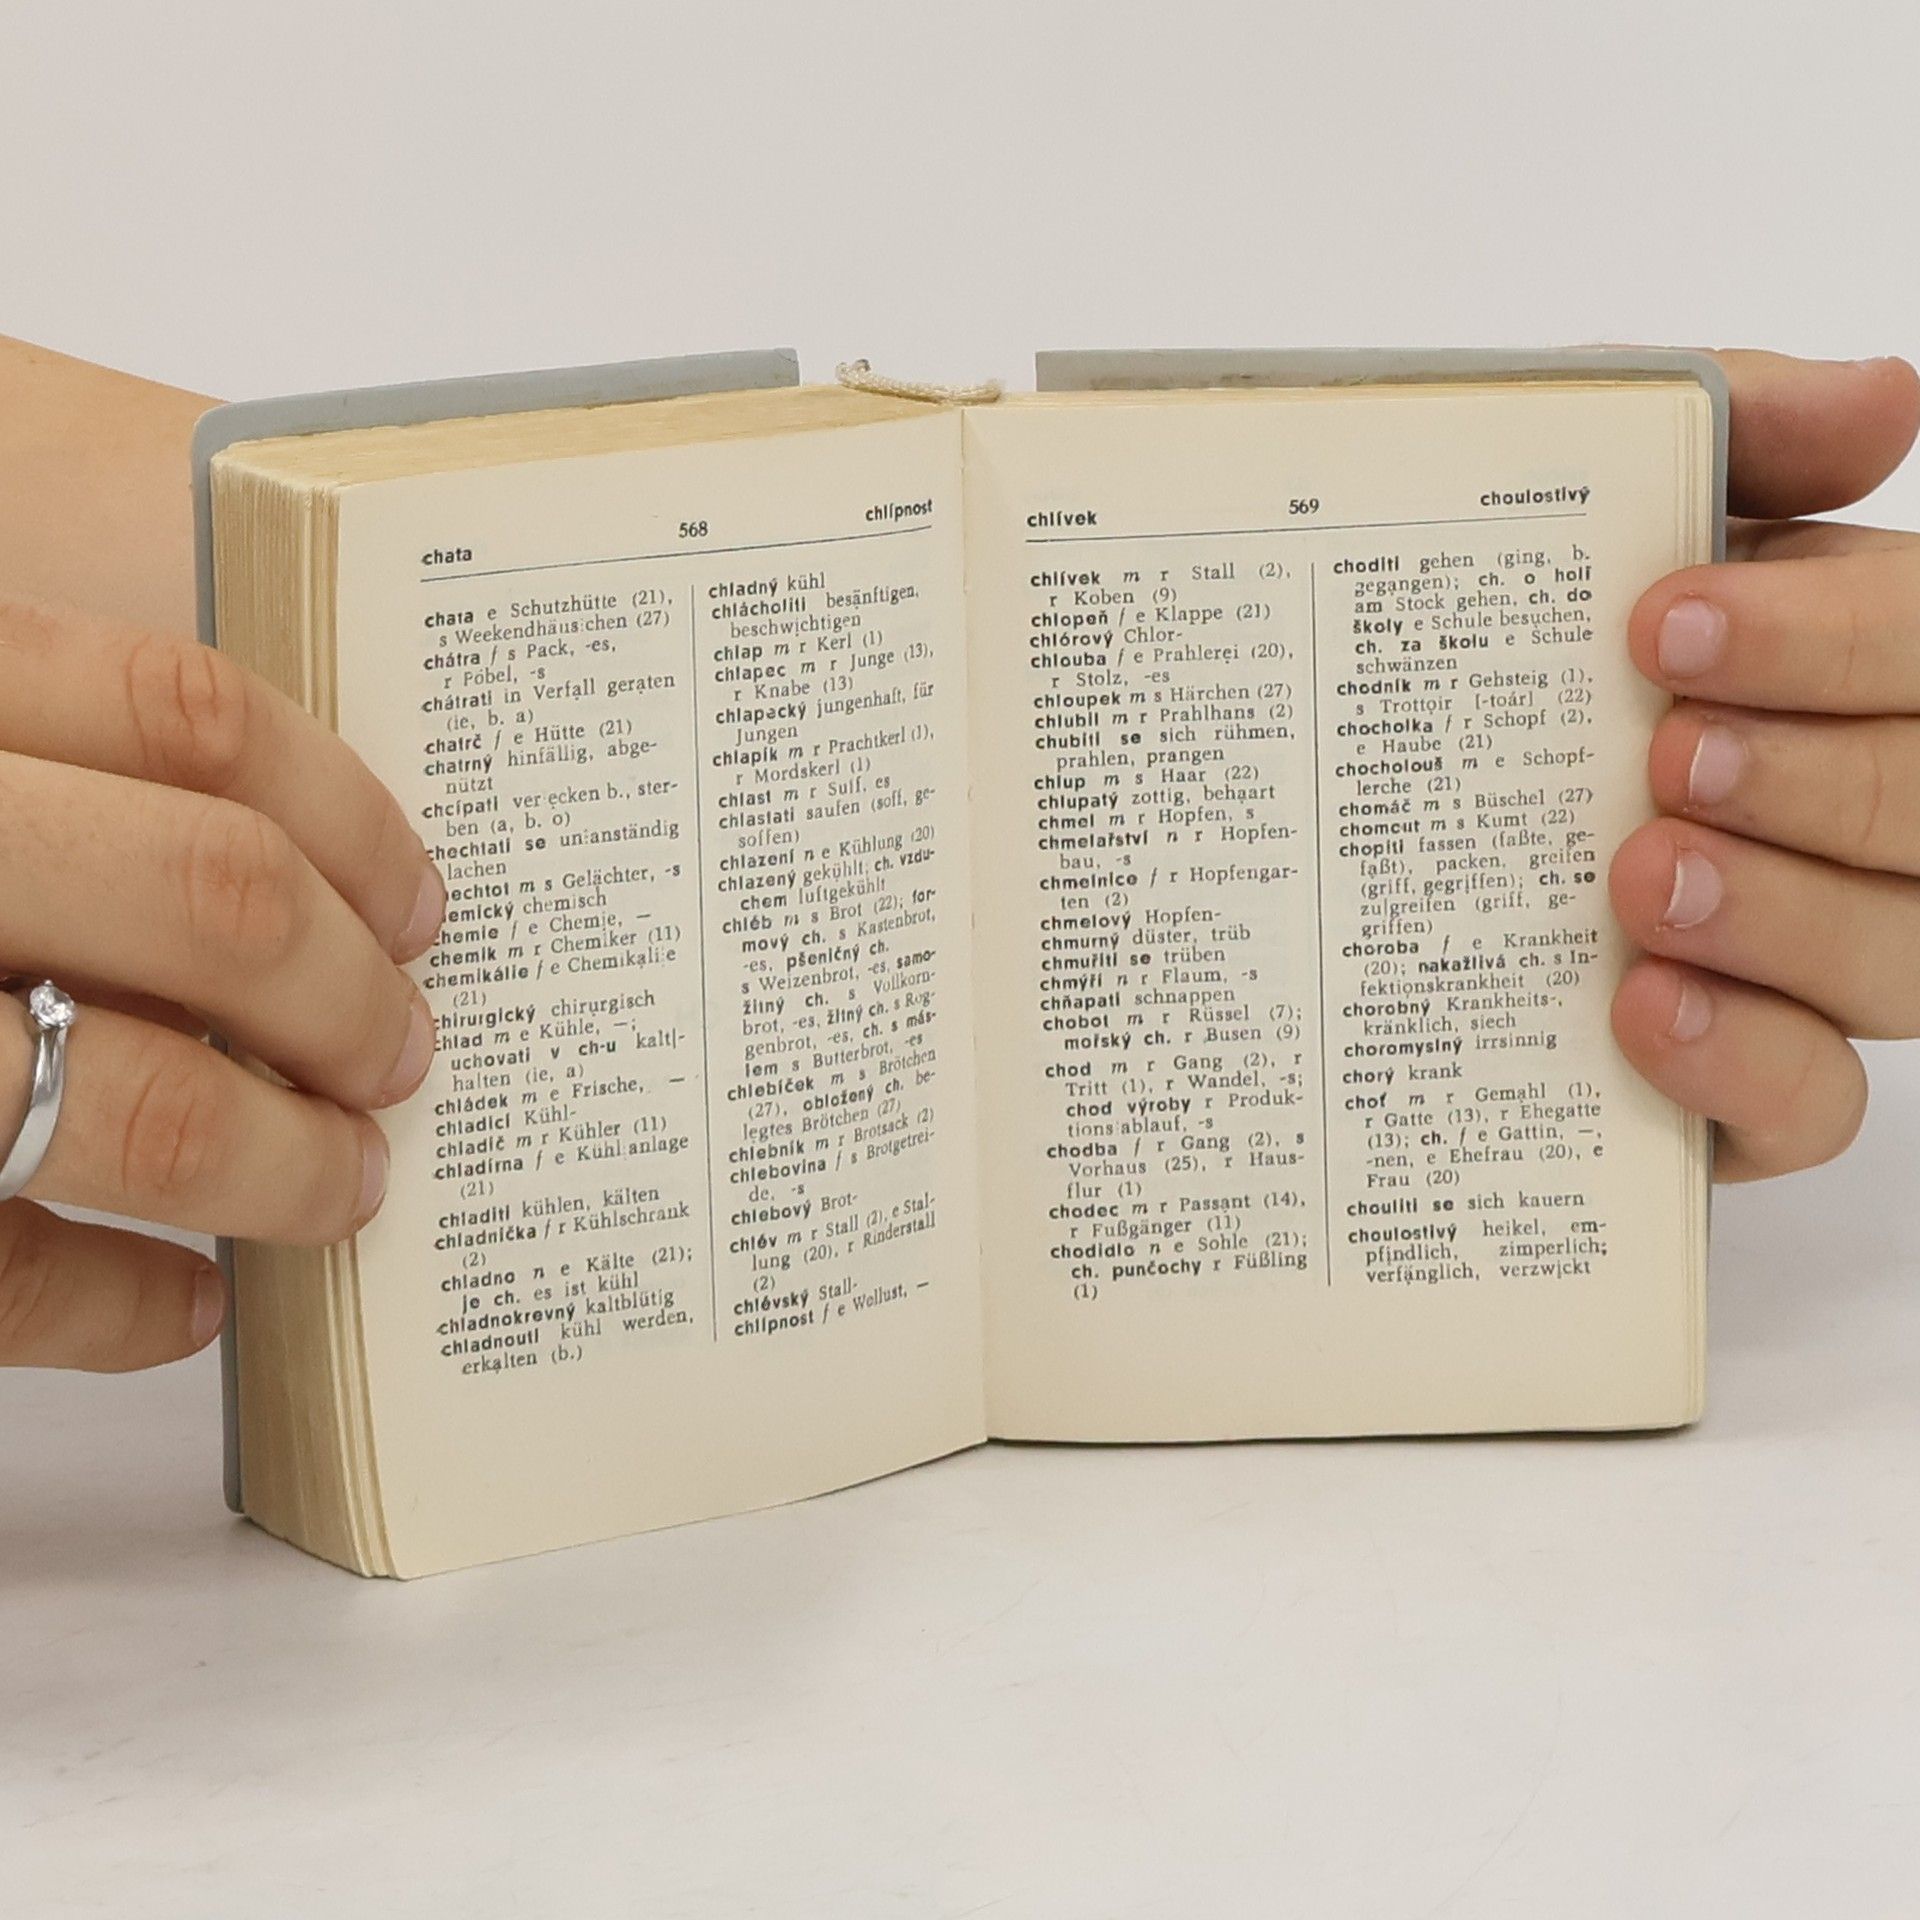 chata
568
chlípnost
chata e Schutzhütte (21),
s Weekendhäus:chen (27)
chátra f s Pack, -es,
r Pöbel, -s
chátrati in Verfall geraten
(ie, b. a)
chatrč f e Hütte (21)
chatrný hinfällig, abge-
nützt
chcípati ver:ecken b., ster-
ben (a, b. o)
chechtati se un:anständig
lachen
echtot m s Gelächter, -s
emický chemisch
chemie f e Chemie, —
chemik m r Chemiker (11)
chemikálie f e Chemikali:e
(21)
chirurgický chirurgisch
chlad m e Kühle, —;
uchovati v ch-u kalt|-
halten (ie, a)
chládek m e Frische, —
chladicí Kühl-
chladič m r Kühler (11)
chladírna f e Kühl:anlage
(21)
chladiti kühlen, kälten
chladnička f r Kühlschrank
(2)
chladno n e Kälte (21);
je ch. es ist kühl
chladnokrevný kaltblütig
chladnouti kühl werden,
erkalten (b.)
chladný kühl
chlácholiti besänftigen,
beschwichtigen
chlap m r Kerl (1)
chlapec m r Junge (13),
r Knabe (13)
chlapecký jungenhaft, für
Jungen
chlapík m r Prachtkerl (1),
r Mordskerl (1)
chlast m r Suff, es
chlastati saufen (soff, ge-
soffen)
chlazení n e Kühlung (20)
chlazený gekühlt; ch. vzdu-
chem luftgekühlt
chléb m s Brot (22); for-
mový ch. s Kastenbrot,
-es, pšeničný ch.
s Weizenbrot, -es, samo-
žitný ch. s Vollkorn-
brot, -es, žitný ch. s Rog-
genbrot, -es, ch. s más-
lem s Butterbrot, -es
chlebíček m s Brötchen
(27), obložený ch. be-
legtes Brötchen (27)
chlebník m r Brotsack (2)
chlebovina f s Brotgetrei-
de, -s
chlebový Brot-
chlév m r Stall (2), e Stal-
lung (20), r Rinderstall
(2)
chlévský Stall-
chlípnost f e Wollust, —
chlívek
569
choulostivý
chlívek m r Stall (2),
r Koben (9)
chlopeň f e Klappe (21)
chlórový Chlor-
chlouba f e Prahlerei (20),
r Stolz, -es
chloupek m s Härchen (27)
chlubil m r Prahlhans (2)
chubiti se sich rühmen,
prahlen, prangen
chlup m s Haar (22)
chlupatý zottig, behaart
chmel m r Hopfen, s
chmelařství n r Hopfen-
bau, -s
chmelnice f r Hopfengar-
ten (2)
chmelový Hopfen-
chmurný düster, trüb
chmuřiti se trüben
chmýří n r Flaum, -s
chňapati schnappen
chobot m r Rüssel (7);
mořský ch. r Busen (9)
chod m r Gang (2), r
Tritt (1), r Wandel, -s;
chod výroby r Produk-
tions:ablauf, -s
chodba f r Gang (2), s
Vorhaus (25), r Haus-
flur (1)
chodec m r Passant (14),
r Fußgänger (11)
chodidlo n e Sohle (21);
ch. punčochy r Füßling
(1)
choditi gehen (ging, b.
gegangen); ch. o holi
am Stock gehen, ch. do
školy e Schule besuchen,
ch. za školu e Schule
schwänzen
chodník m r Gehsteig (1),
s Trottoir [-toár] (22)
chocholka f r Schopf (2),
e Haube (21)
chocholouš m e Schopf-
lerche (21)
chomáč m s Büschel (27)
chomout m s Kumt (22)
chopiti fassen (faßte, ge-
faßt), packen, greifen
(griff, gegriffen); ch. se
zu|greifen (griff, ge-
griffen)
choroba f e Krankheit
(20); nakažlivá ch. s In-
fektionskrankheit (20)
chorobný Krankheits-,
kränklich, siech
choromyslný irrsinnig
chorý krank
choť m r Gemahl (1),
r Gatte (13), r Ehegatte
(13); ch. f e Gattin, —,
-nen, e Ehefrau (20), e
Frau (20)
chouliti se sich kauern
choulostivý heikel, em-
pfindlich, zimperlich;
verfänglich, verzwickt